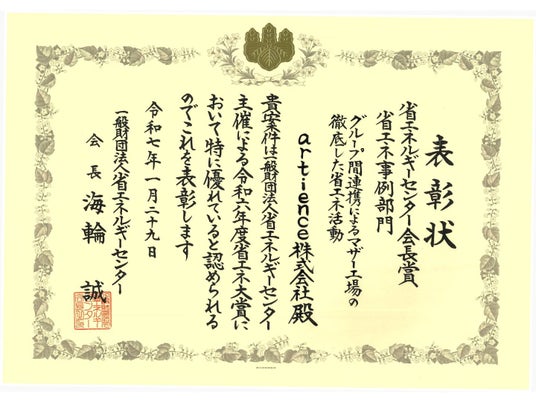 表彰状
省エネルギーセンター会長賞
省エネ事例部門
グループ間連携によるマザー工場の
徹底した省エネ活動
artience株式会社 殿
貴案件は一般財団法人省エネルギーセンター
主催による令和六年度省エネ大賞に
おいて特に優れていると認められる
のでこれを表彰します
令和七年一月二十九日
一般財団法人省エネルギーセンター
会長 海輪 誠